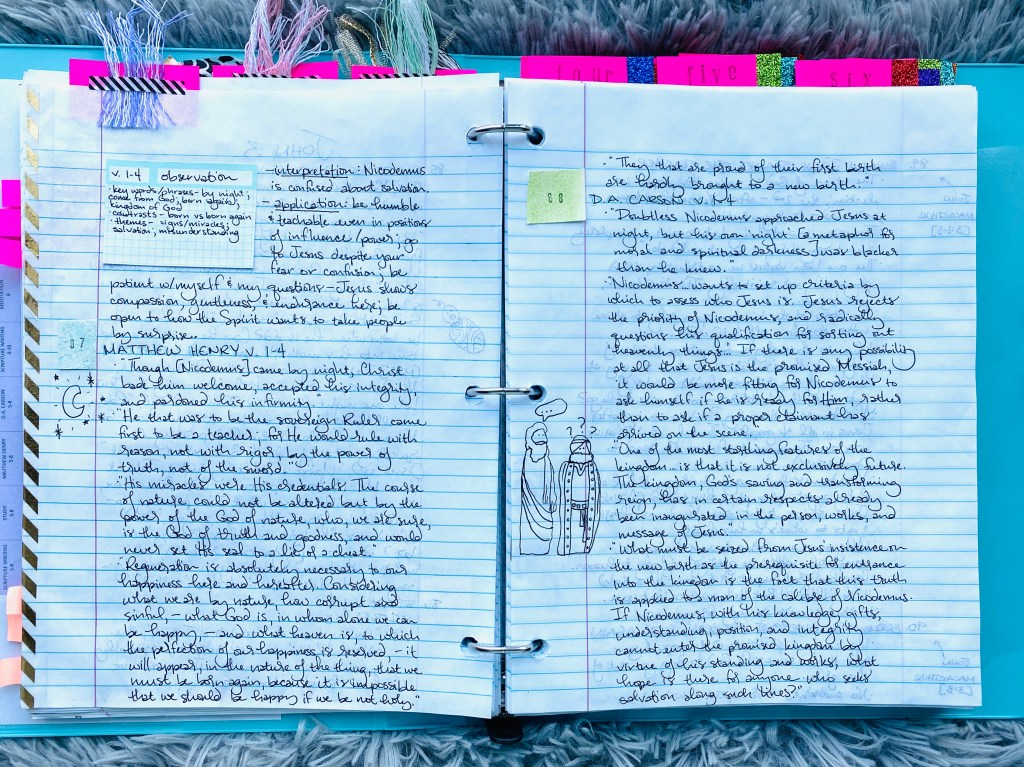 four
five
six
v. 1-4 observation
• key words/phrases - by night;
come from God; born again;
kingdom of God
• contrasts - born vs born again
• themes - signs/miracles;
salvation, misunderstanding
- interpretation: Nicodemus
is confused about salvation.
- application: be humble
& teachable even in positions
of influence/power; go
to Jesus despite your
fear or confusion; be
patient w/myself & my questions - Jesus shows
compassion, gentleness, & endurance here; be
open to how the Spirit wants to take people
by surprise.
87
MATTHEW HENRY v. 1-4
• "Though [Nicodemus] came by night, Christ
bade him welcome, accepted his integrity,
and pardoned his infirmity."
• "He that was to be the sovereign Ruler came
first to be a teacher; for He would rule with
reason, not with rigor, by the power of
truth, not of the sword."
• "His miracles were His credentials. The course
of nature could not be altered but by the
power of the God of nature, who, we are sure,
is the God of truth and goodness, and would
never set His seal to a lie or a cheat."
• "Regeneration is absolutely necessary to our
happiness here and hereafter. Considering
what we are by nature, how corrupt and
sinful, - what God is, in whom alone we can
be happy, - and what heaven is, to which
the perfection of our happiness is reserved, - it
will appear, in the nature of the thing, that we
must be born again, because it is impossible
that we should be happy if we be not holy."
MEDITATION
SCRIPTURE WRITING
D.A. CARSON
MATTHEW HENRY
STUDY
SCRIPTURE WRITING
• "They that are proud of their first birth
are hardly brought to a new birth."
88
D.A. CARSON v. 1-4
• "Doubtless Nicodemus approached Jesus at
night, but his own 'night' [a metaphor for
moral and spiritual darkness] was blacker
than he knew."
• "Nicodemus... wants to set up criteria by
which to assess who Jesus is. Jesus rejects
the priority of Nicodemus, and radically
questions his qualification for sorting out
'heavenly things'... If there is any possibility
at all that Jesus is the promised Messiah,
it would be more fitting for Nicodemus to
ask himself if he is ready for Him, rather
than to ask if a proper claimant has
arrived on the scene.
• "One of the most startling features of the
kingdom... is that it is not exclusively future.
The kingdom, God's saving and transforming
reign, has in certain respects already
been inaugurated in the person, works, and
message of Jesus."
• "What must be seized from Jesus' insistence on
the new birth as the prerequisite for entrance
into the kingdom is the fact that this truth
is applied to a man of the calibre of Nicodemus.
If Nicodemus, with his knowledge, gifts,
understanding, position, and integrity
cannot enter the promised kingdom by
virtue of his standing and works, what
hope is there for anyone who seeks
salvation along such lines?"
? ? ?